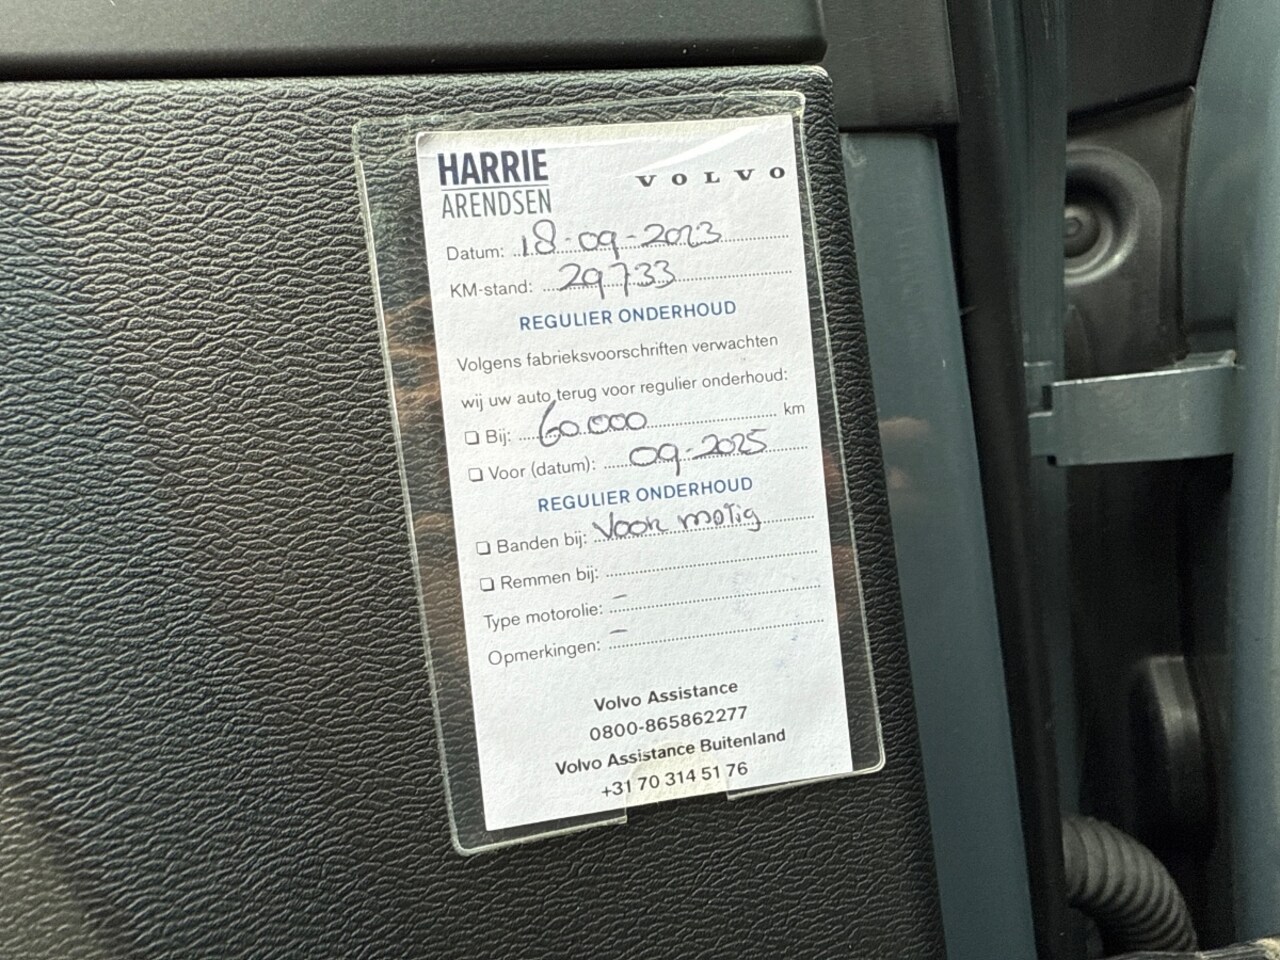 HARRIE
ARENDSEN
VOLVO
Datum: 18-09-2023
KM-stand: 29733
REGULIER ONDERHOUD
Volgens fabrieksvoorschriften verwachten
wij uw auto terug voor regulier onderhoud:
❏ Bij: 60.000 km
❏ Voor (datum): 09-2025
REGULIER ONDERHOUD
❏ Banden bij: Voor matig
❏ Remmen bij:
Type motorolie: -
Opmerkingen: -
Volvo Assistance
0800-865862277
Volvo Assistance Buitenland
+31 70 314 51 76